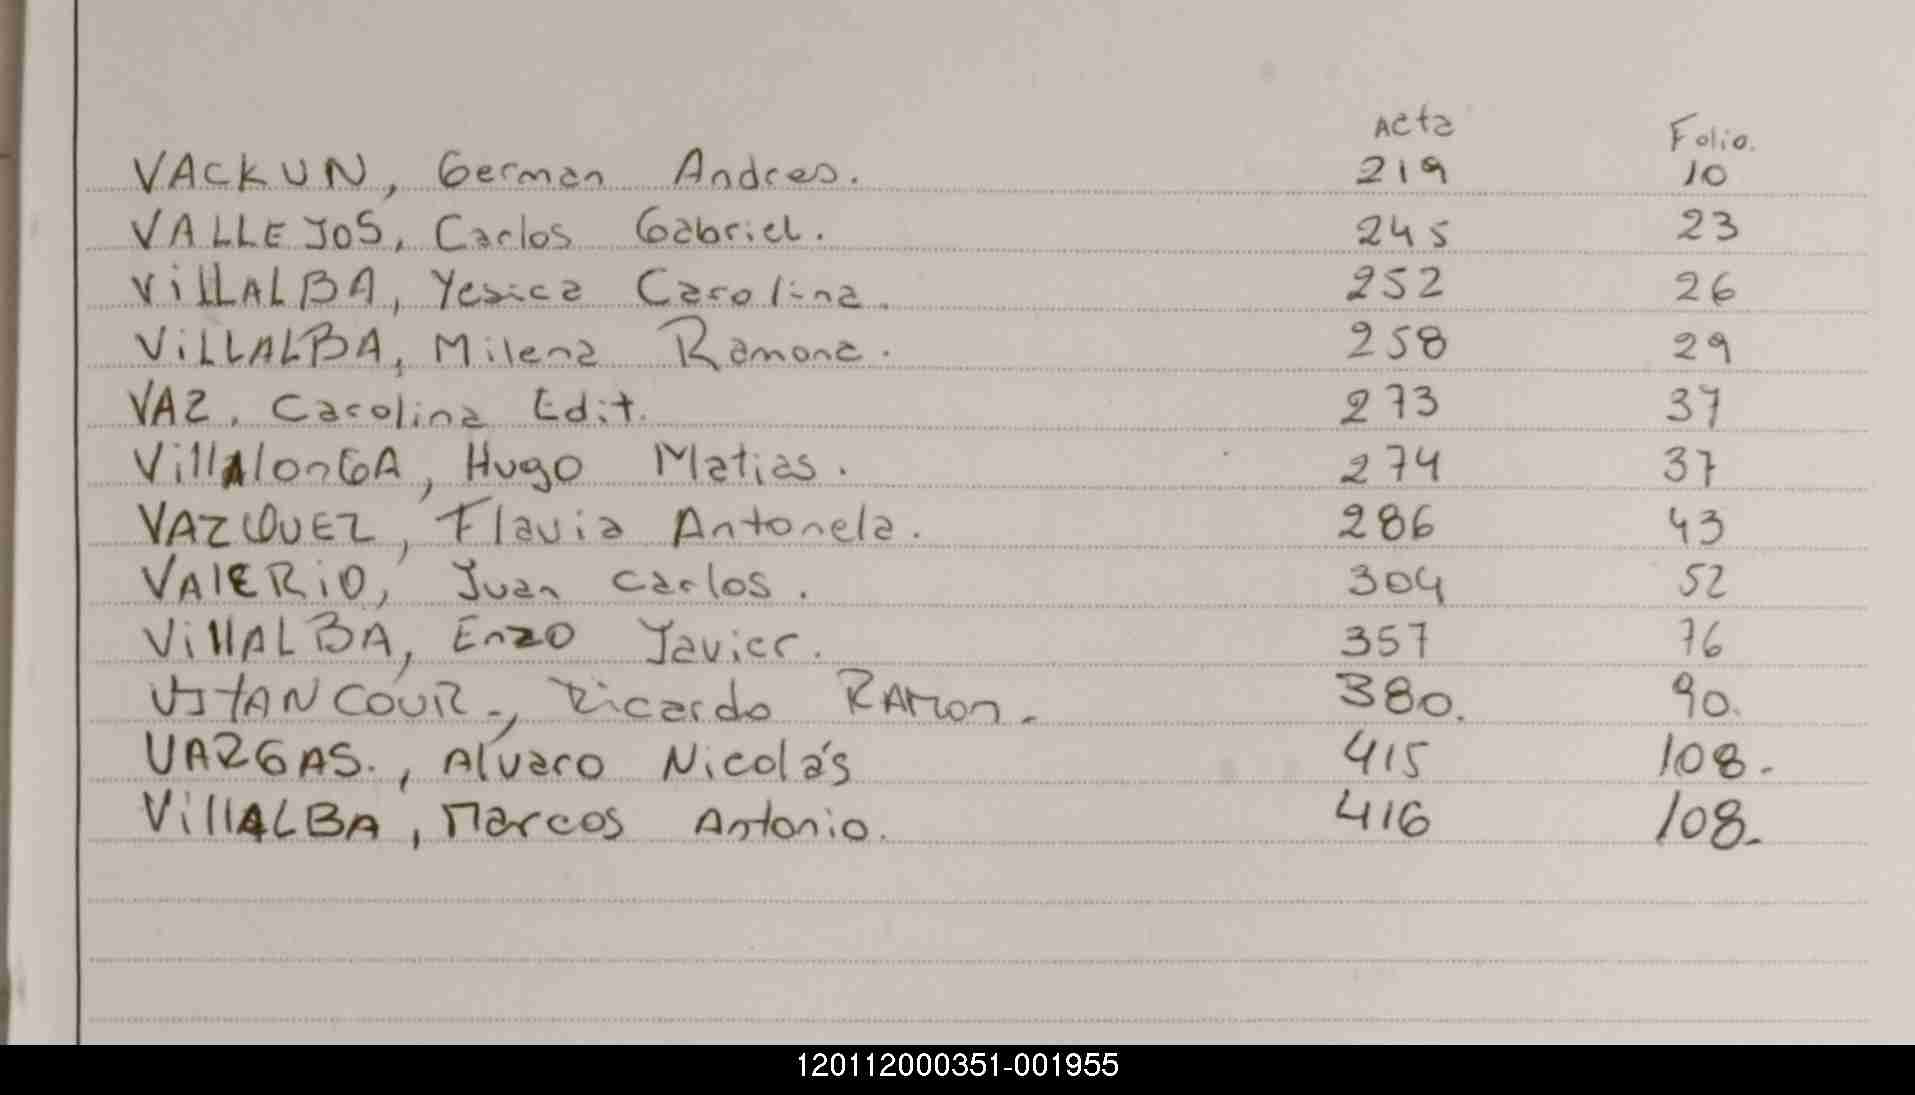 Acta Folio.
VACKUN, German Andres. 219 10
VALLEJOS, Carlos Gabriel. 245 23
ViLLALBA, Yesica Carolina. 252 26
ViLLALBA, Milena Ramona. 258 29
VAZ, Carolina Edit. 273 37
VillAlonGA, Hugo Matias. 274 37
VAZQUEZ, Flavia Antonela. 286 43
VAlERiO, Juan Carlos. 304 52
VillALBA, Enzo Javier. 357 76
VITANCOUR-, Ricardo RAMon. 380. 90.
VARGAS., Alvaro Nicolás 415 108.
VillALBA, Marcos Antonio. 416 108.
120112000351-001955